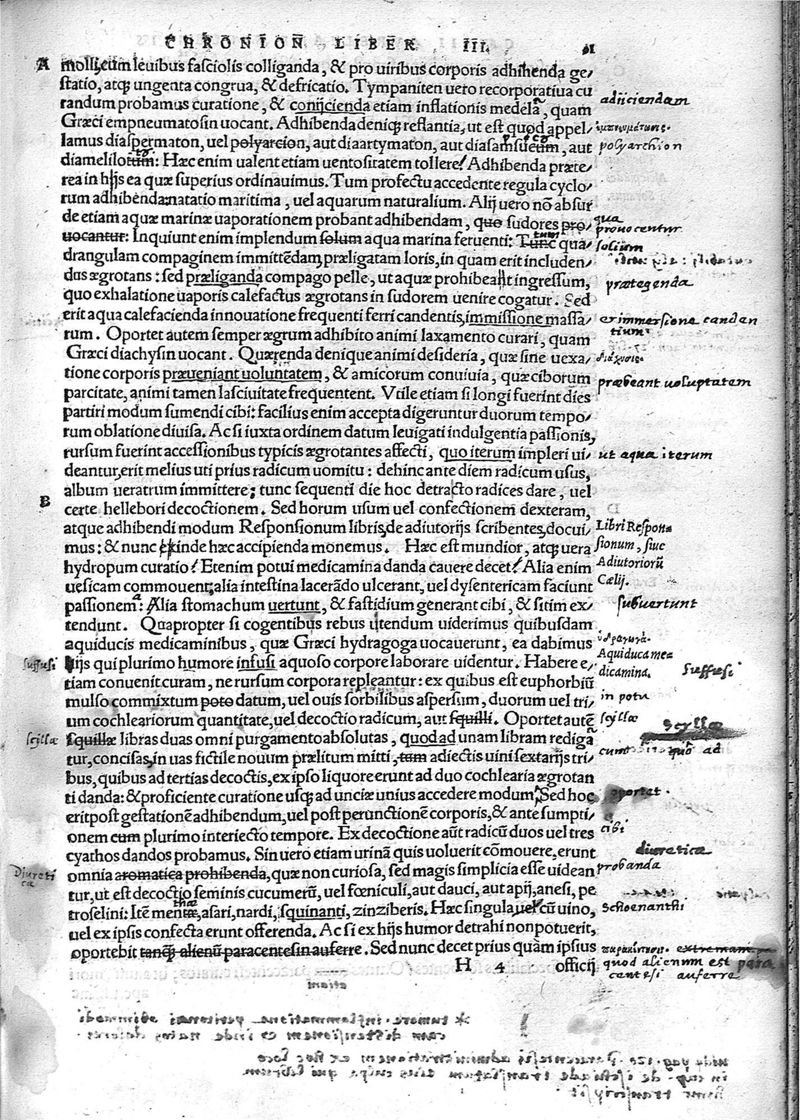 CHRONION LIBER III. 61
A mollitum leuibus fasciolis colliganda, & pro uiribus corporis adhibenda ge/
statio, atq; ungenta congrua, & defricatio. Tympaniten uero recorporatiua cu
randum probamus curatione, & conijcienda etiam inflationis medelã, quam
adijciendam
Græci empneumatosin uocant. Adhibenda deniq; reflantia, ut est quod appel/
lamus diaspermaton, uel polyarcion, aut diaartymaton, aut diasamsucum, aut
polyarchion
diameliloton: Hæc enim ualent etiam uentositatem tollere. Adhibenda præte/
rea in hijs ea quæ superius ordinauimus. Tum profectu accedente regula cyclo/
rum adhibenda, natatio maritima, uel aquarum naturalium. Alij uero nõ absur
de etiam aquæ marinæ uaporationem probant adhibendam, quo sudores pro/
qua
prouocentur
uocantur. Inquiunt enim implendum solum aqua marina feruenti: Tunc qua/
solium
drangulam compaginem immittẽdam, præligatam loris, in quam erit includen/
dus ægrotans: sed præliganda compago pelle, ut aquæ prohibeat ingressum,
prætegenda
quo exhalatione uaporis calefactus ægrotans in sudorem uenire cogatur. Sed
erit aqua calefacienda innouatione frequenti ferri candentis, immissione massa/
et immersione canden
tium
rum. Oportet autem semper ægrum adhibito animi laxamento curari, quam
Græci diachysin uocant. Quærenda denique animi desideria, quæ sine uexa/
tione corporis præueniant uoluntatem, & amicorum conuiuia, quæ ciborum
præbeant uoluptatem
parcitate, animi tamen lasciuitate frequentent. Vtile etiam si longi fuerint dies
partiri modum sumendi cibi: facilius enim accepta digeruntur duorum tempo/
rum oblatione diuisa. Ac si iuxta ordinem datum leuigati indulgentia passionis,
rursum fuerint accessionibus typicis ægrotantes affecti, quo iterum impleri ui/
ut aqua iterum
deantur, erit melius uti prius radicum uomitu: dehinc ante diem radicum usus,
album ueratrum immittere; tunc sequenti die hoc detracto radices dare, uel
B certe hellebori decoctionem. Sed horum usum uel confectionem dexteram,
atque adhibendi modum Responsionum libris, de adiutorijs scribentes, docui/
Libri Respon
mus: & nunc exinde hæc accipienda monemus. Hæc est mundior, atq; uera
sionum, siue
hydropum curatio. Etenim potui medicamina danda cauere decet. Alia enim
Adiutoriorũ
uesicam commouent, alia intestina lacerãdo ulcerant, uel dysentericam faciunt
Cælij.
passionem: Alia stomachum uertunt, & fastidium generant cibi, & sitim ex/
subuertunt
tendunt. Quapropter si cogentibus rebus utendum uiderimus quibusdam
aquiducis medicaminibus, quæ Græci hydragoga uocauerunt, ea dabimus
Aquiduca me
dicamina.
suffusi hijs qui plurimo humore infusi aquoso corpore laborare uidentur. Habere e/
Suffusi
tiam conuenit curam, ne rursum corpora repleantur: ex quibus est euphorbiũ
mulso commixtum poto datum, uel ouis sorbilibus aspersum, duorum uel tri/
in potu
um cochleariorum quantitate, uel decoctio radicum, aut squilli. Oportet autẽ
scyllæ
Scyllæ
scyllæ squillæ libras duas omni purgamento absolutas, quod ad unam libram redigã
quo ad
tur, concisas, in uas fictile nouum prælitum mitti, tum adiectis uini sextarijs tri/
bus, quibus ad tertias decoctis, ex ipso liquore erunt ad duo cochlearia ægrotan
ti danda: & proficiente curatione usq; ad unciæ unius accedere modum. Sed hoc
oportet
erit post gestationẽ adhibendum, uel post perunctionẽ corporis, & ante sumpti/
onem cum plurimo interiecto tempore. Ex decoctione aũt radicũ duos uel tres
cibi
cyathos dandos probamus. Sin uero etiam urinã quis uoluerit cõmouere, erunt
diuretica
Diureti
ca
omnia aromatica prohibenda, quæ non curiosa, sed magis simplicia esse uidean
probanda
tur, ut est decoctio seminis cucumerũ, uel fœniculi, aut dauci, aut apij, anesi, pe
troselini: Itẽ mentæ, asari, nardi, squinanti, zinziberis. Hæc singula, uel cũ uino,
Schoenanthi
uel ex ipsis confecta erunt offerenda. Ac si ex hijs humor detrahi non potuerit,
oportebit tanq; alienũ paracentesin auferre. Sed nunc decet prius quàm ipsius
quod alienum est para
centesi auferre
H 4 officij